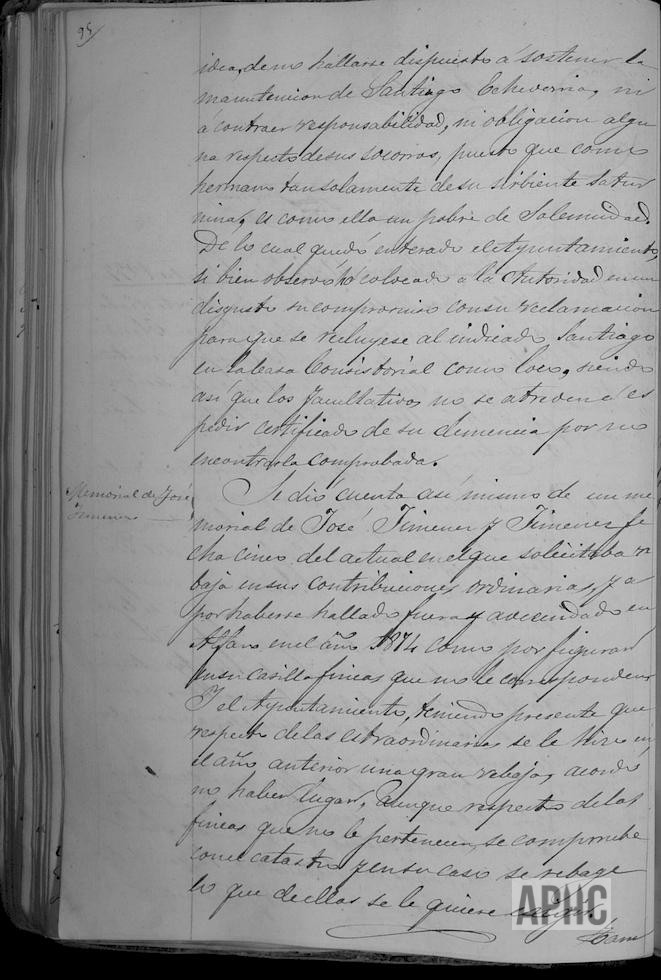 95
idea, de no hallarse dispuesto á sostener la
manutencion de Santiago Echeverria, ni
á contraer responsabilidad, ni obligacion algu
na respecto de sus socorros, puesto que como
hermano tan solamente de su sirbiente Satur
nina, es como ella un pobre de Solemnidad.
De lo cual quedó enterado el Ayuntamiento,
si bien observó colocado a la Autoridad en un
disgusto su compromiso con su reclamacion
para que se recluyese al indicado Santiago
en la Casa Consistorial como loco, siendo
así que los facultativos no se atreven á es
pedir certificado de su demencia por no
encontrarla comprobada.
Memorial de José
Jimenez
Se dió cuenta así mismo de un me
morial de José Jimenez y Jimenez fe
cha cinco del actual en el que solicitaba re
baja en sus contribuciones ordinarias, ya
por haberse hallado fuera y avecindado en
Alfaro en el año 1874 como por figurar
en su casilla fincas que no le corresponden
Y el Ayuntamiento, teniendo presente que
respecto de las estraordinarias se le hizo en
el año anterior una gran rebaja, acordó
no haber lugar, aunque respecto de las
fincas que no le pertenecen, se compruebe
con el catastro y en su caso se rebage
lo que de ellas se le quiere exigir.
APHC